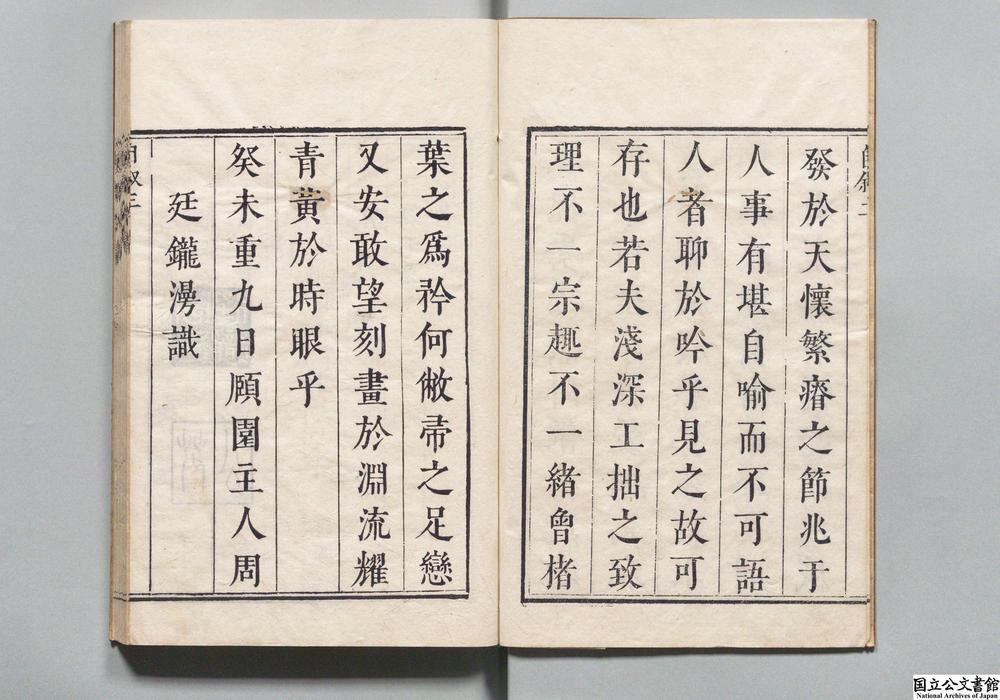 發於天懷繁瘠之節兆于
人事有堪自喻而不可語
人者聊於吟乎見之故可
存也若夫淺深工拙之致
理不一宗趣不一緒曾楮
葉之爲矜何敝帚之足戀
又安敢望刻畫於淵流耀
青黃於時眼乎
癸未重九日願園主人周
廷鑨澷識
国立公文書館
National Archives of Japan